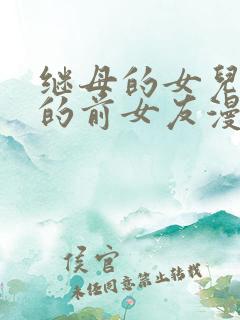 继母的女兒
的前女友漫
侯官
未经同意禁止转载